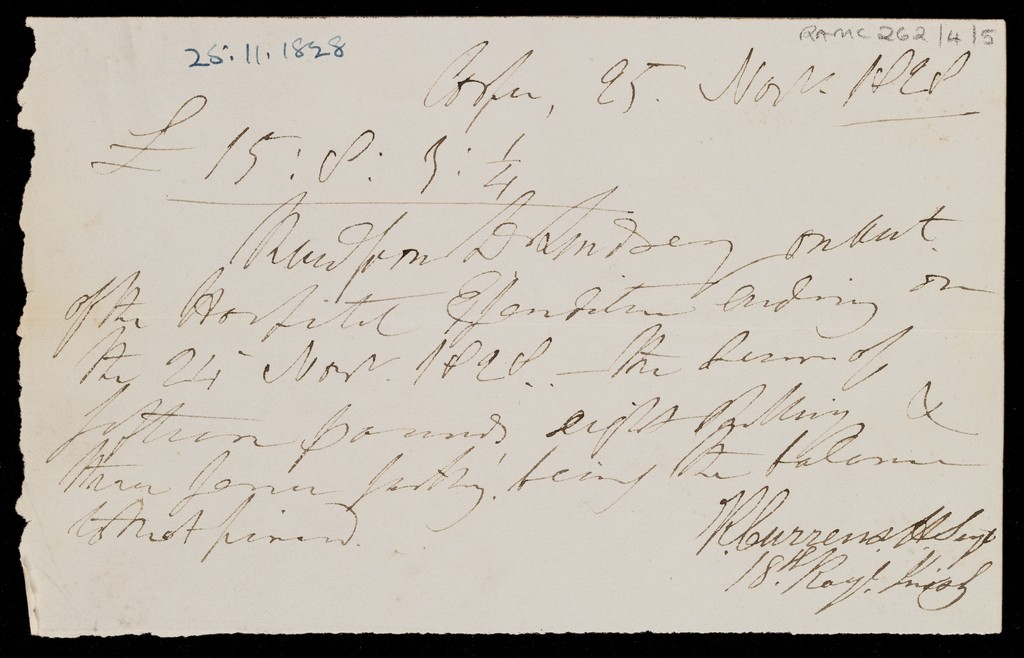 25.11.1828
RAMC 262/4/5
Corfu, 25. Novr. 1828
£ 15: 8: 3: 1/4
Recd from Dr Lindsey on acct.
of the Hospital Expenditure ending on
the 24 Novr. 1828. – the sum of
fifteen pounds, eight shilling &
three pence farthing, being the balance
to that period.
Currens. H Sergt
18th Roy. Irish